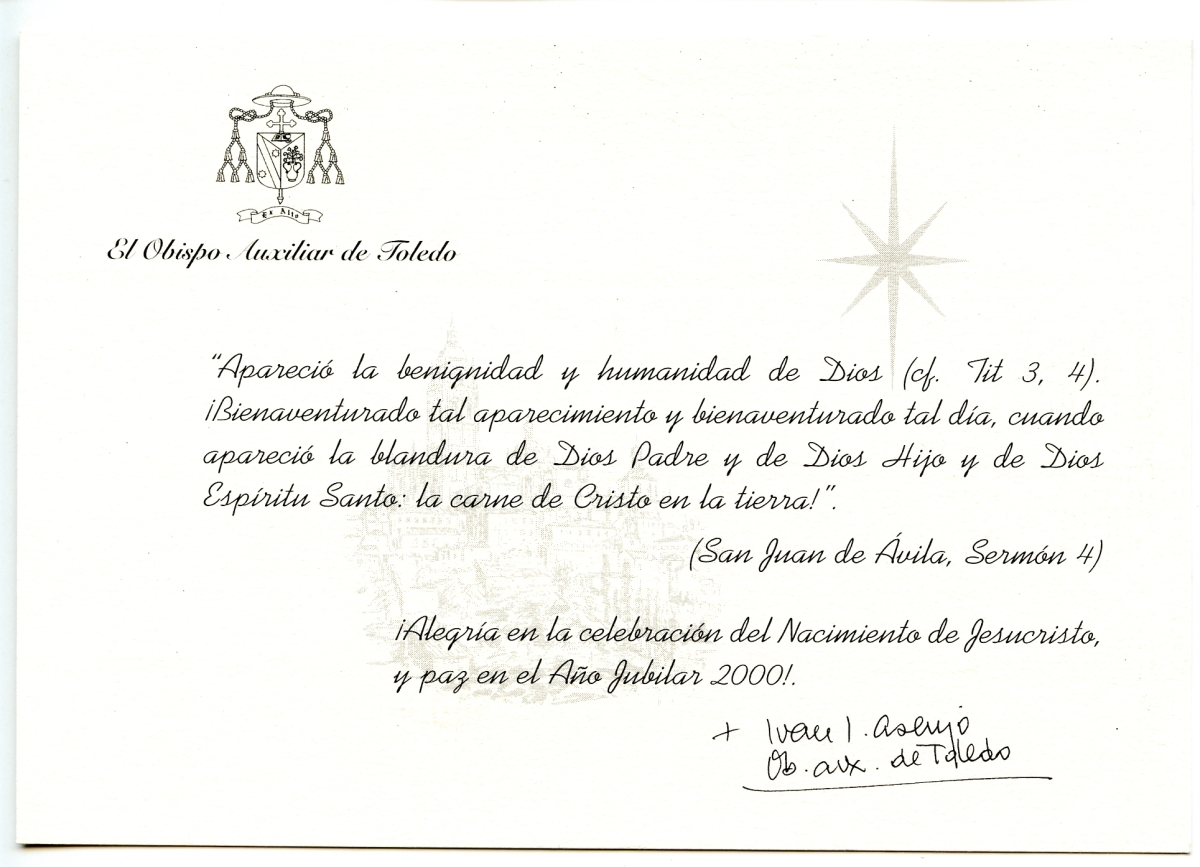 Ex Alto
El Obispo Auxiliar de Toledo
“Apareció la benignidad y humanidad de Dios (cf. Tit 3, 4).
¡Bienaventurado tal aparecimiento y bienaventurado tal día, cuando
apareció la blandura de Dios Padre y de Dios Hijo y de Dios
Espíritu Santo: la carne de Cristo en la tierra!”.
(San Juan de Ávila, Sermón 4)
¡Alegría en la celebración del Nacimiento de Jesucristo,
y paz en el Año Jubilar 2000!.
+ Juan J. Asenjo
Ob. aux. de Toledo